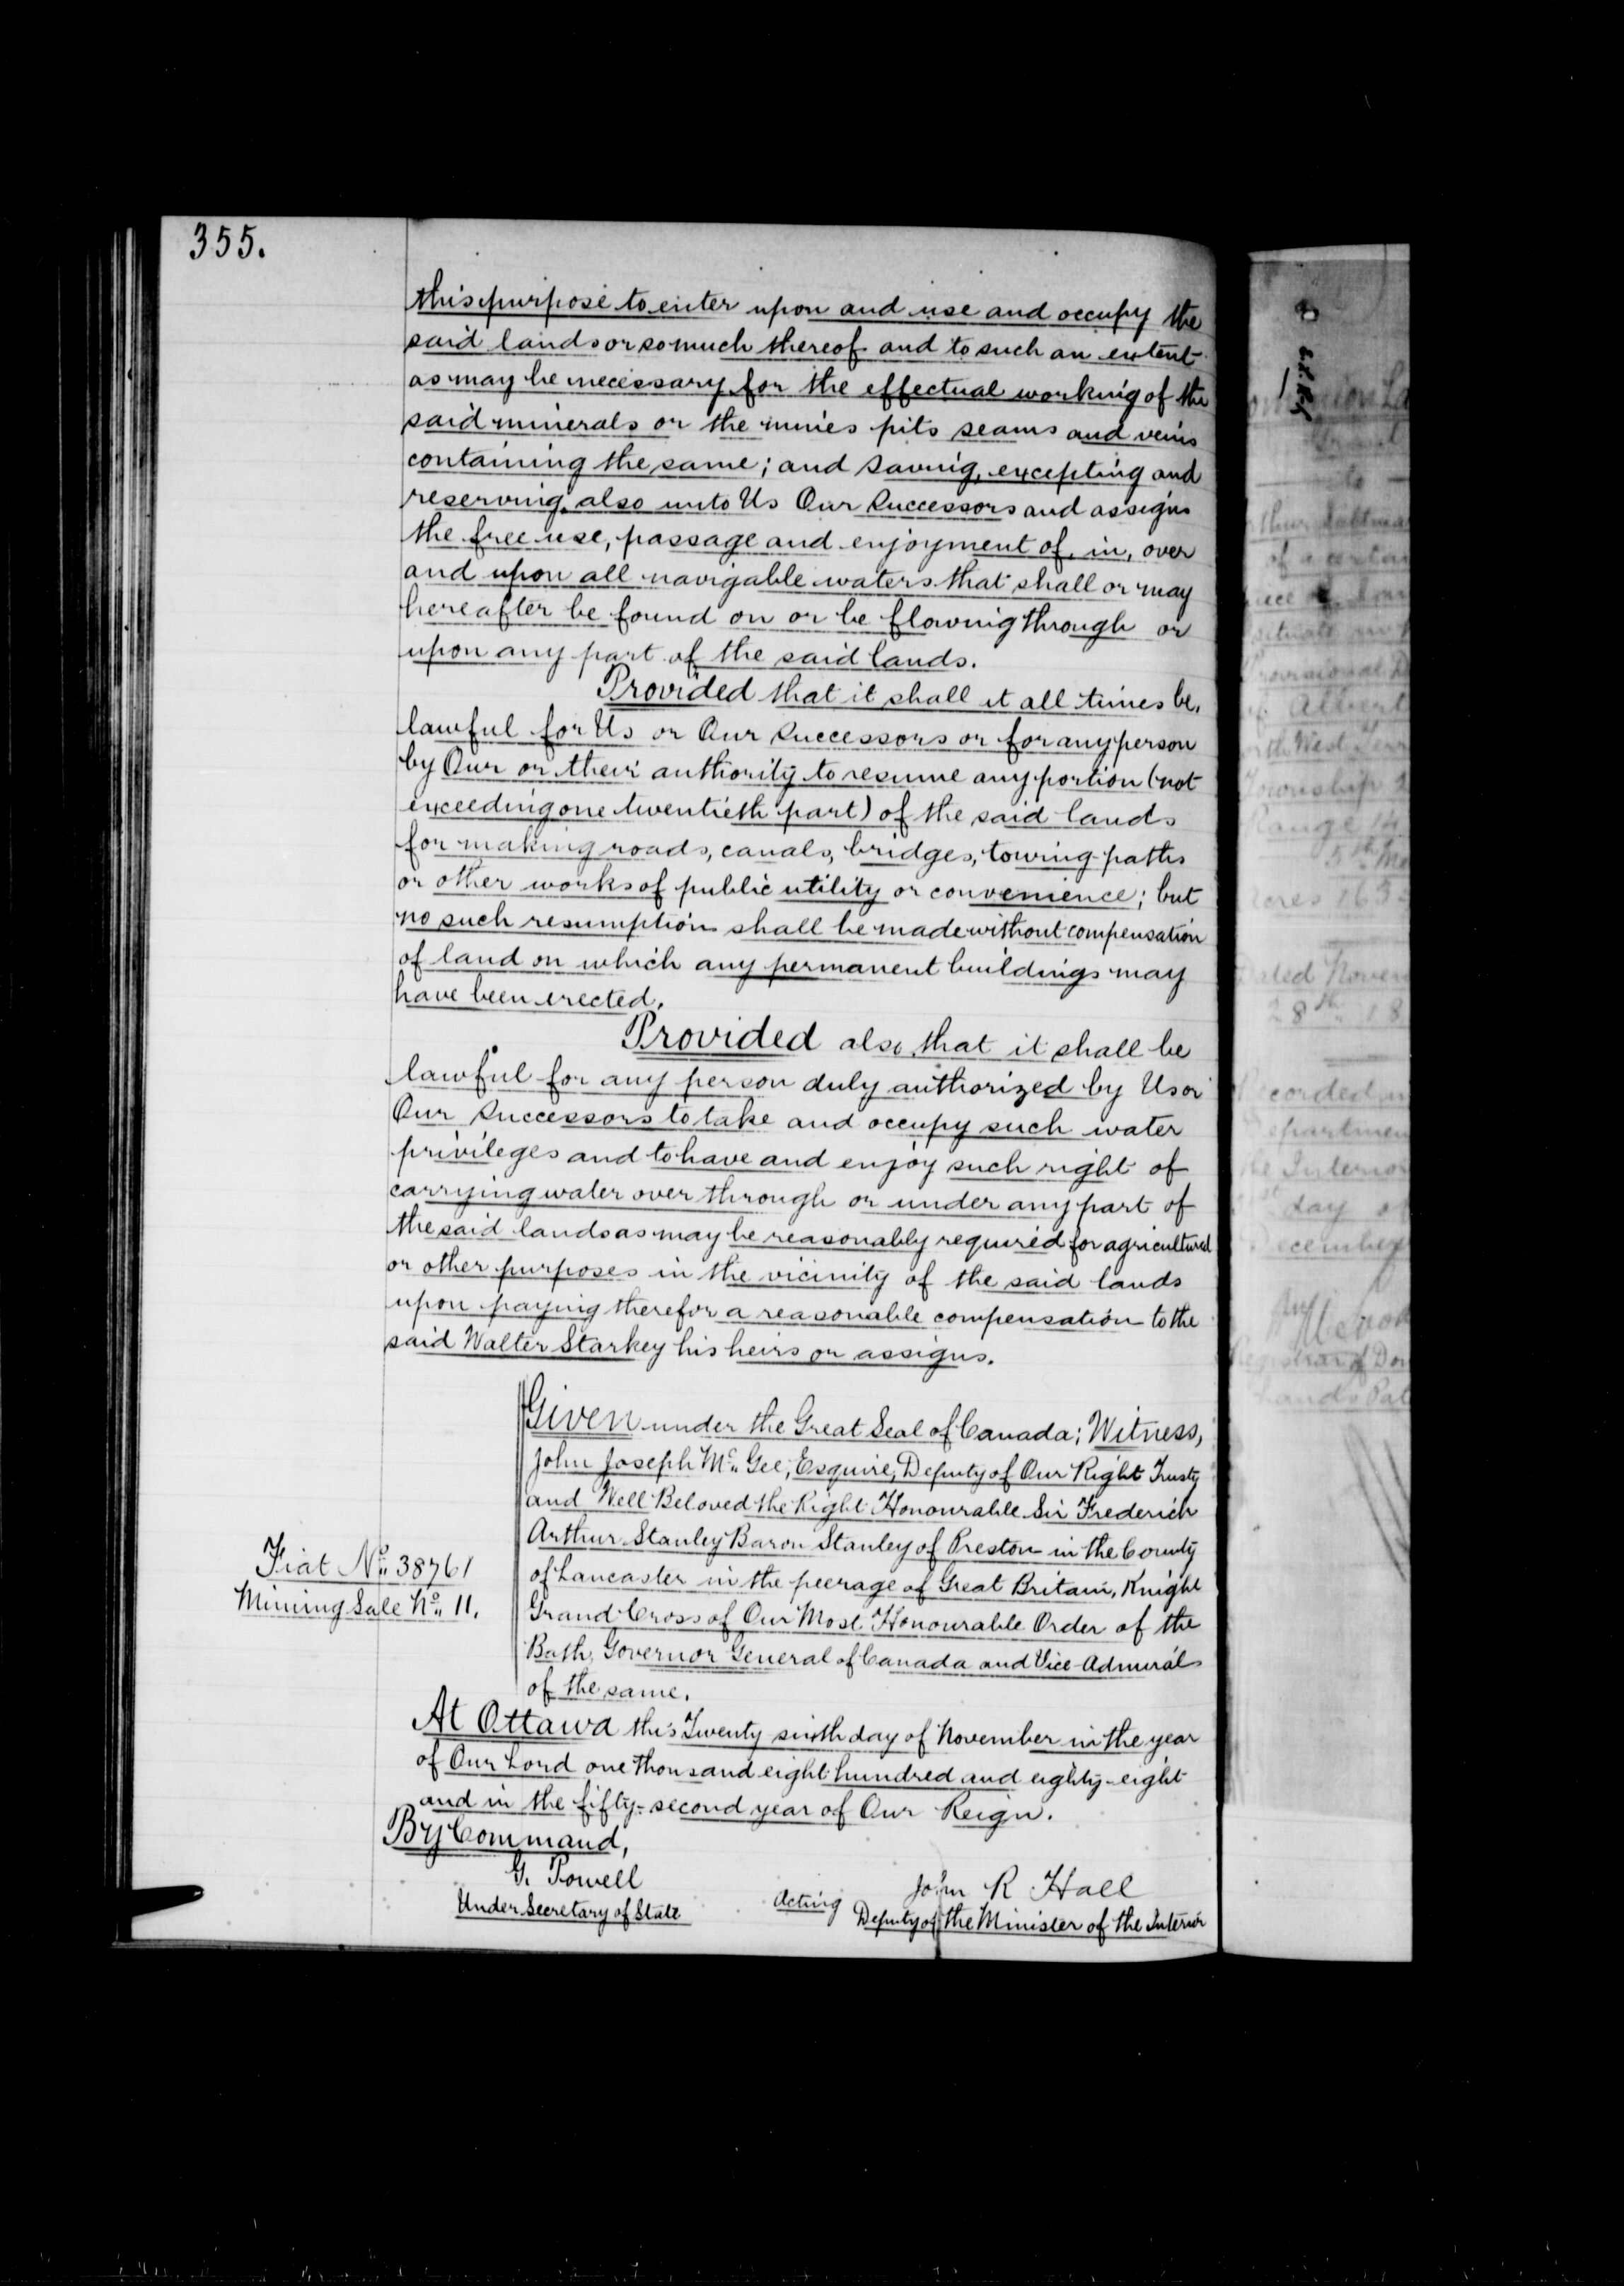 355.
this purpose to enter upon and use and occupy the
said lands or so much thereof and to such an extent
as may be necessary for the effectual working of the
said minerals or the mines pits seams and veins
containing the same; and saving, excepting and
reserving also unto Us Our Successors and assigns
the free use, passage and enjoyment of, in, over
and upon all navigable waters that shall or may
hereafter be found on or be flowing through or
upon any part of the said lands.
Provided that it shall at all times be,
lawful for Us or Our Successors or for any person
by Our or their authority to resume any portion (not
exceeding one twentieth part) of the said lands
for making roads, canals, bridges, towing-paths
or other works of public utility or convenience; but
no such resumption shall be made without compensation
of land on which any permanent buildings may
have been erected.
Provided also, that it shall be
lawful for any person duly authorized by Us or
Our Successors to take and occupy such water
privileges and to have and enjoy such right of
carrying water over through or under any part of
the said lands as may be reasonably required for agricultural
or other purposes in the vicinity of the said lands
upon paying therefor a reasonable compensation to the
said Walter Starkey his heirs or assigns.
Given under the Great Seal of Canada; Witness,
John Joseph Mc Gee, Esquire, Deputy of Our Right Trusty
and Well Beloved the Right Honourable Sir Frederick
Arthur Stanley Baron Stanley of Preston in the County
of Lancaster in the peerage of Great Britain, Knight
Grand Cross of Our Most Honourable Order of the
Bath, Governor General of Canada and Vice-Admiral
of the same.
Fiat No. 38761
Mining Sale No. 11.
At Ottawa this Twenty sixth day of November in the year
of Our Lord one thousand eight hundred and eighty-eight
and in the fifty-second year of Our Reign.
By Command,
G. Powell
Under Secretary of State
John R Hall
Acting Deputy of the Minister of the Interior
of a certai
situate in
Provisional D
of Albert
West Terr
Township
Range 14
5th Me
Acres 165
Dated Novem
28th 18
Recorded in
Departmen
the Interior
day of
December
Registrar of Dom
Lands Pat